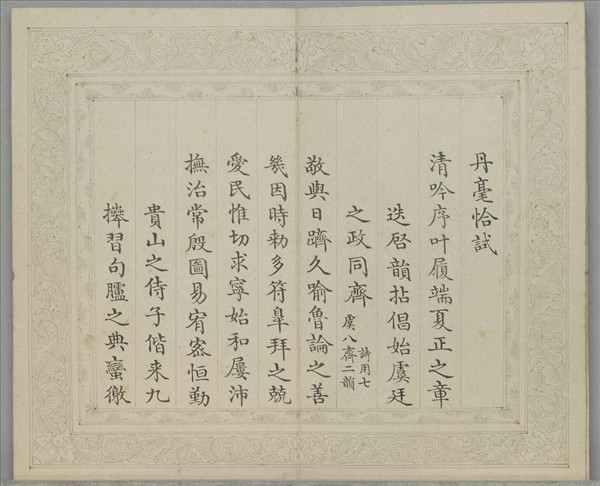 丹毫恰試
清吟序叶履端夏正之章
迭啓韻拈倡始虞廷
之政同齊
詩用七
虞八齊二韻
敬與日躋久喻魯論之善
幾因時勅多符臯拜之兢
愛民惟切求寧始和屢沛
撫治常殷圖易宥密恒勤
貴山之侍子偕來九
習句臚之典蠻徼